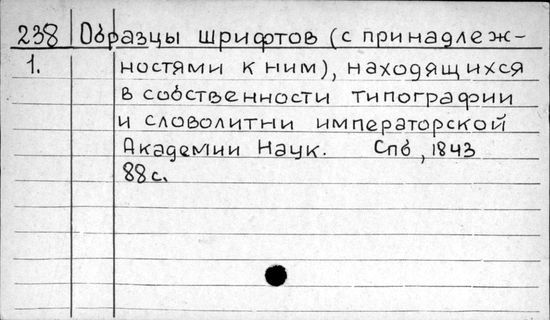 238 Образцы шрифтов (с принадлеж-
1. ностями к ним), находящихся
в собственности типографии
и словолитни императорской
Академии Наук. Спб, 1843
88 с.